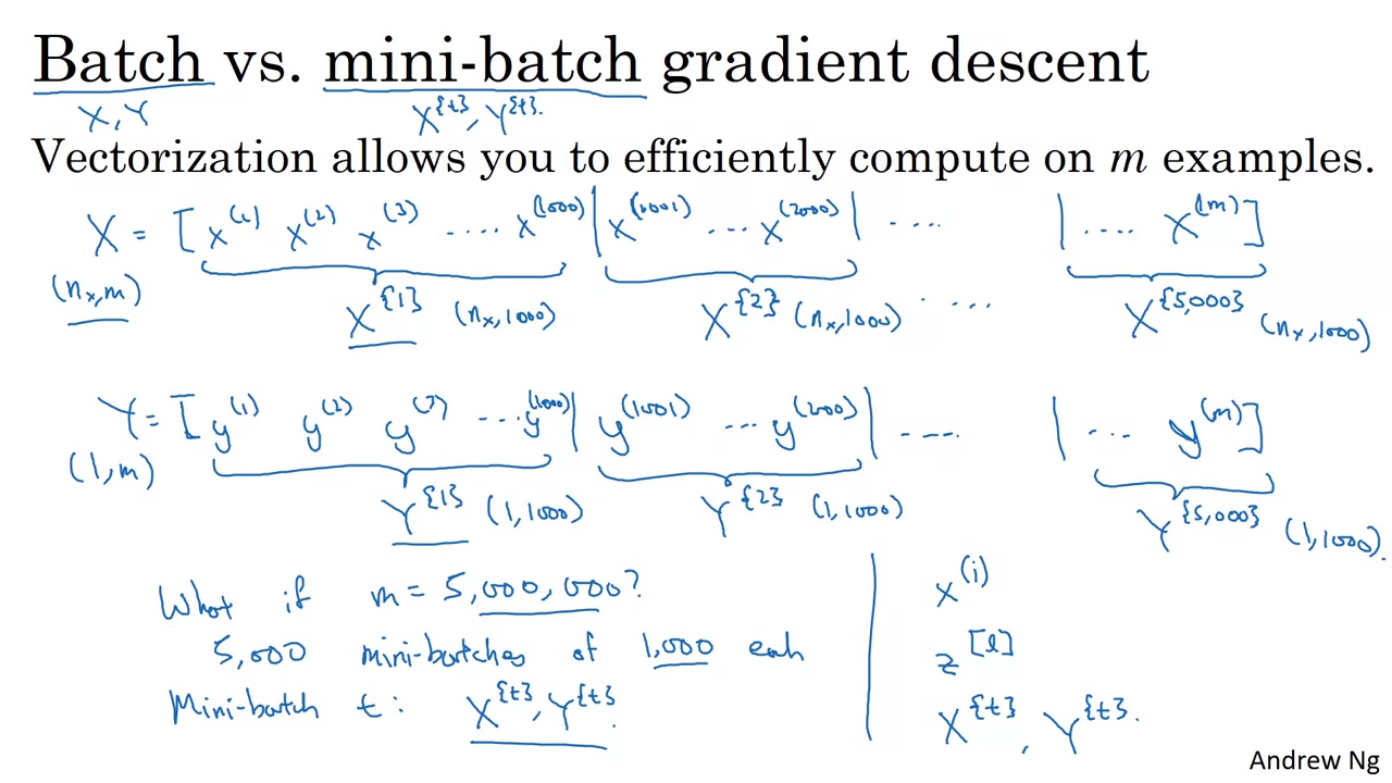 Batch vs. mini-batch gradient descent
X, Y X^{t}, Y^{t}.
Vectorization allows you to efficiently compute on m examples.
X = [x^(1) x^(2) x^(3) .... x^(1000) | x^(1001) ... x^(2000) | .... | .... x^(m)]
(n_x, m) X^{1} (n_x, 1000) X^{2} (n_x, 1000) .... X^{5,000} (n_x, 1000)
Y = [y^(1) y^(2) y^(3) ... y^(1000) | y^(1001) ... y^(2000) | .... | ... y^(m)]
(1, m) Y^{1} (1, 1000) Y^{2} (1, 1000) Y^{5,000} (1, 1000).
What if m = 5,000,000?
5,000 mini-batches of 1,000 each
Mini-batch t: X^{t}, Y^{t}.
x^(i)
z^[l]
X^{t}, Y^{t}.
Andrew Ng